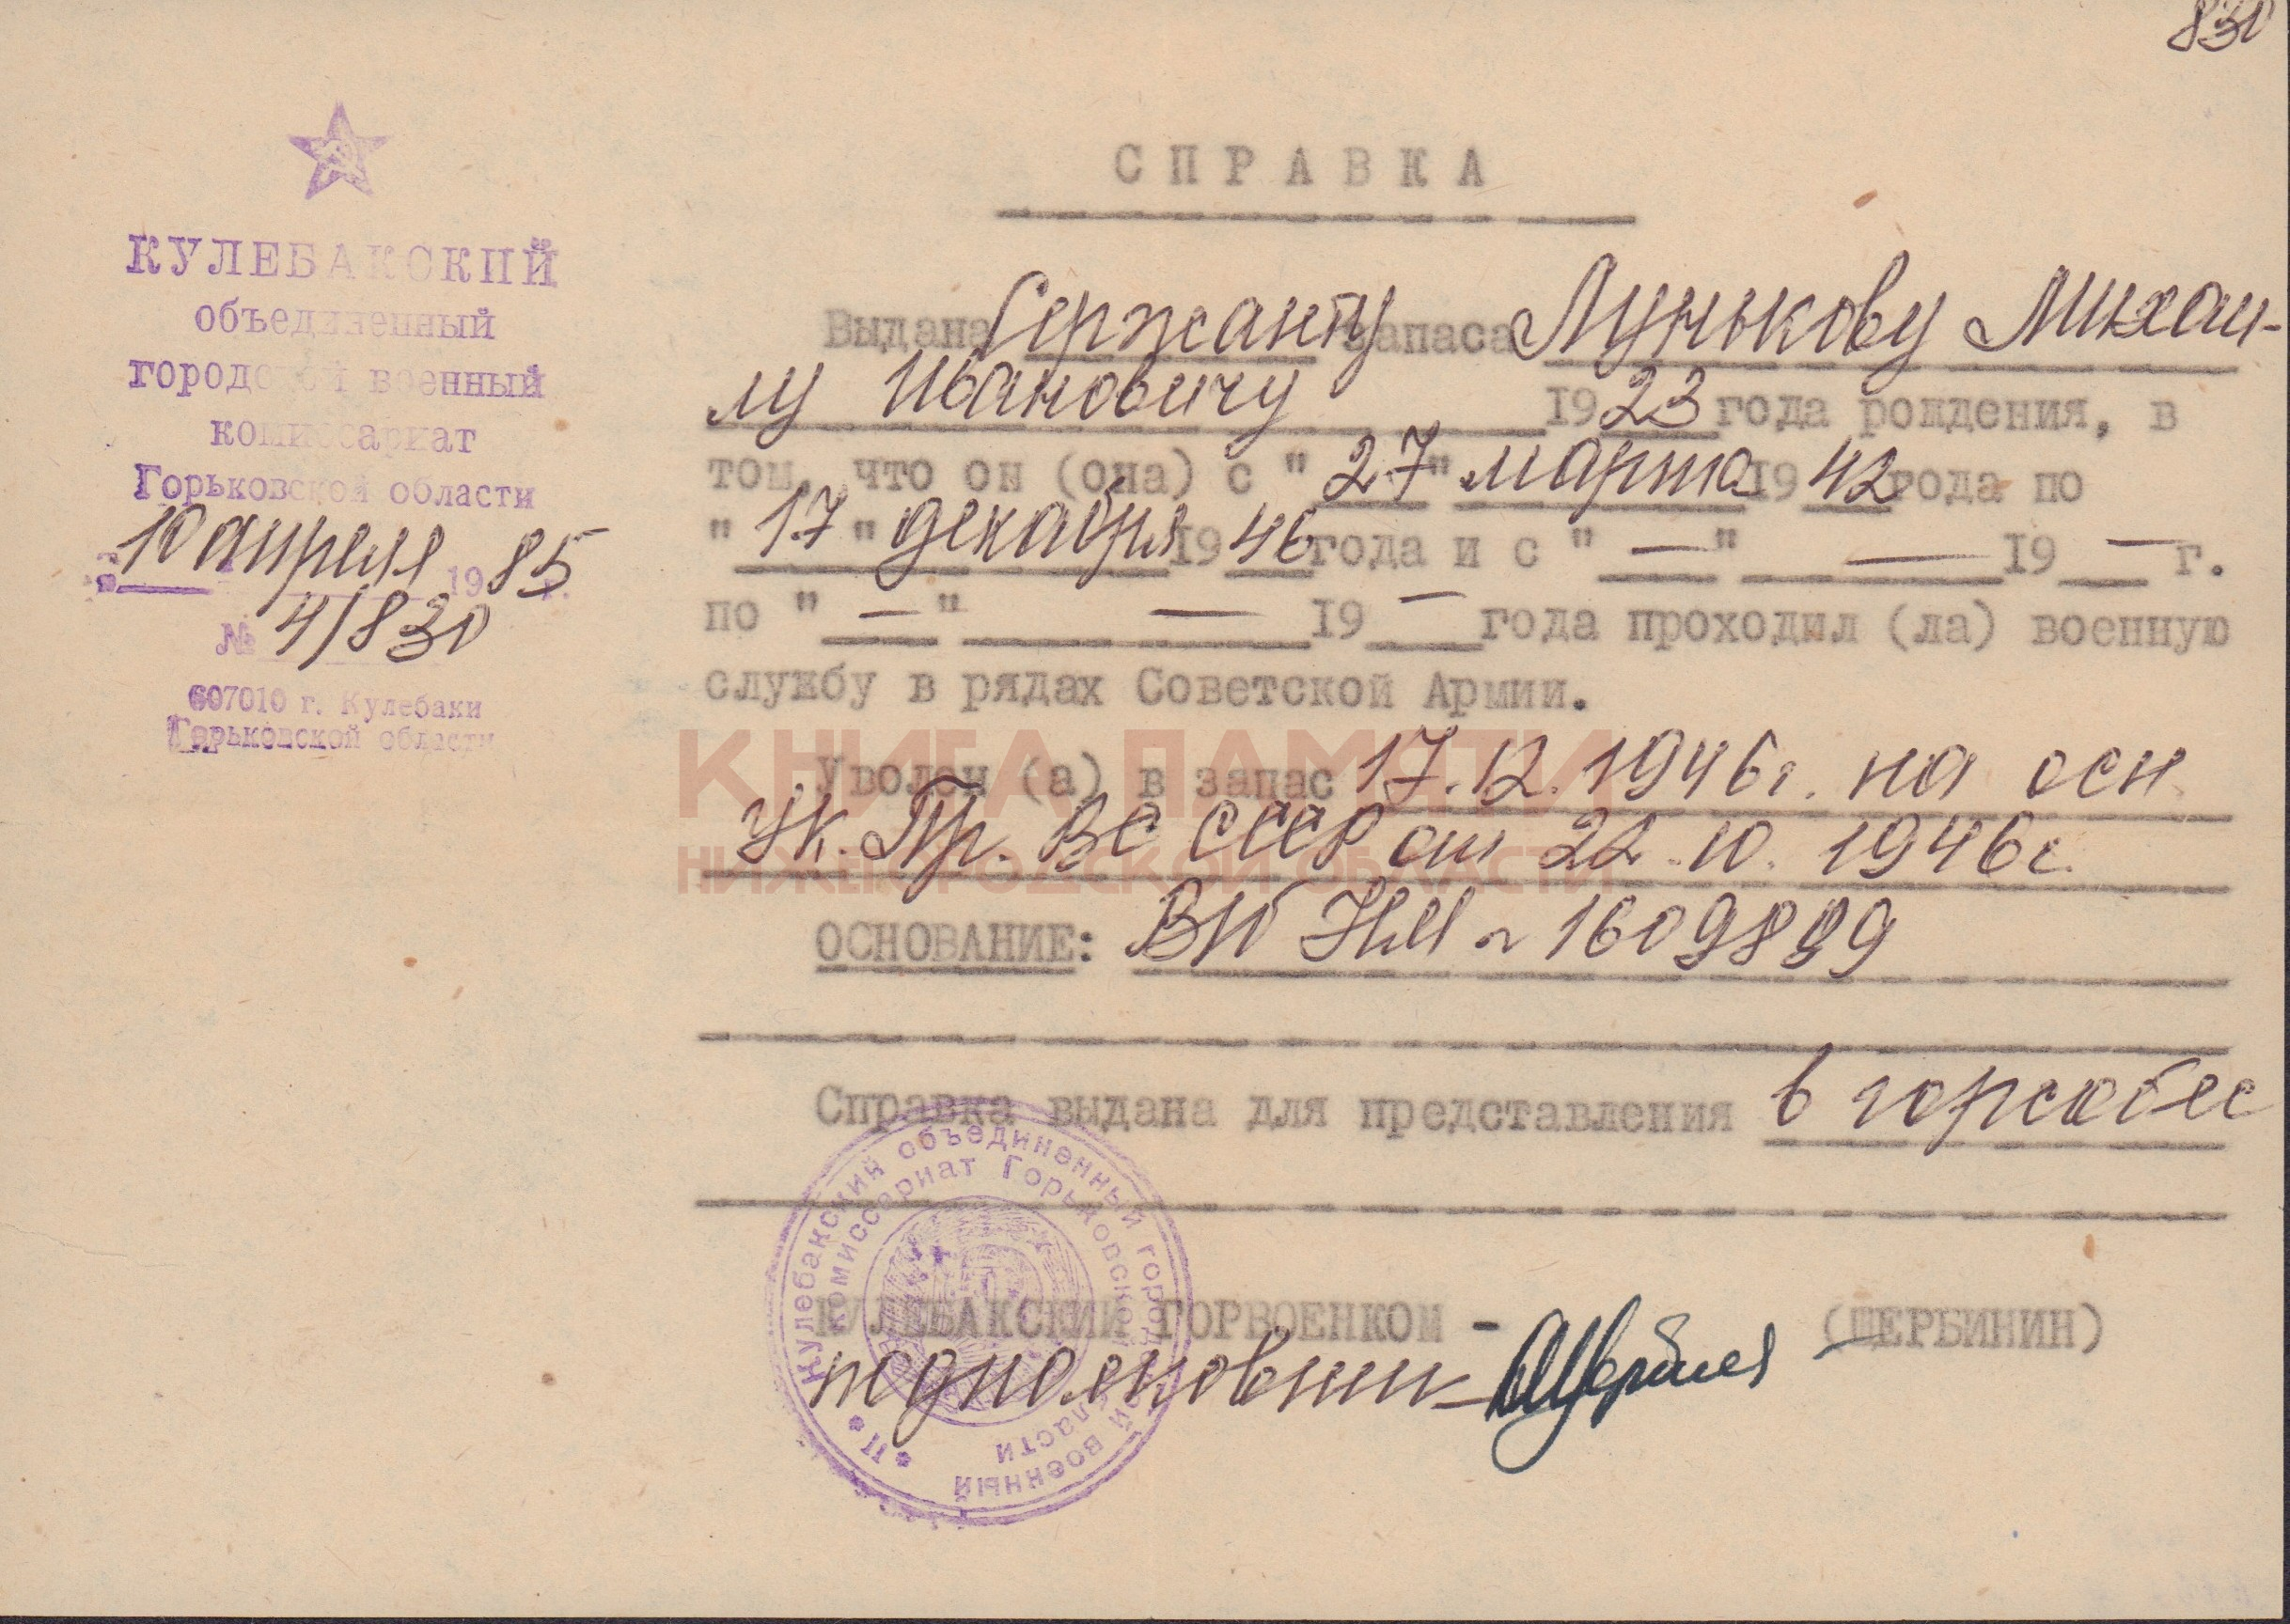 830
КУЛЕБАКСКИЙ
объединенный
городской военный
комиссариат
Горьковской области
"10" апреля 1985 г.
№ 4/830
607010 г. Кулебаки
Горьковской области
СПРАВКА
Выдана Сержанту запаса Лунькову Михаи-
лу Ивановичу 1923 года рождения, в
том, что он (она) с "27" марта 1942 года по
"17" декабря 1946 года и с "—" — 19 — г.
по "—" — 19 — года проходил (ла) военную
службу в рядах Советской Армии.
Уволен (а) в запас 17.12.1946г. на осн.
Ук. Пр. ВС СССР от 22.10.1946г.
ОСНОВАНИЕ: ВБ НМ № 1609889
Справка выдана для представления в горсобес
КУЛЕБАКСКИЙ ГОРВОЕНКОМ - (ЩЕРБИНИН)
подполковник
Кулебакский объединенный городской военный
комиссариат Горьковской области
* II *
КНИГА ПАМЯТИ
НИЖЕГОРОДСКОЙ ОБЛАСТИ